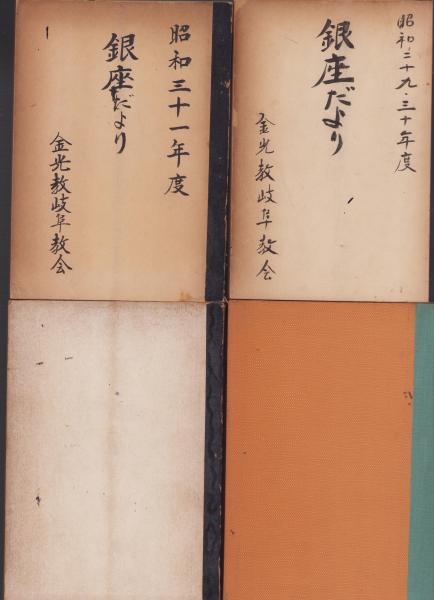 昭和三十一年度
銀座だより
金光教岐阜教会
昭和二十九・三十年度
銀座だより
金光教岐阜教会